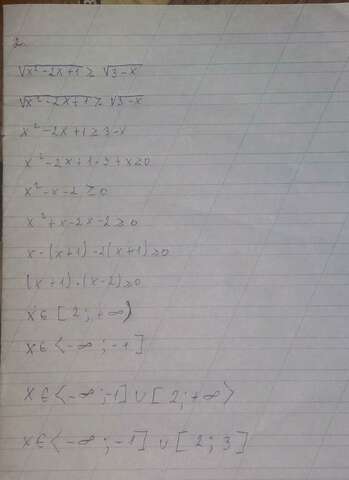 2.
√x²-2x+1 ≥ √3-x
√x²-2x+1 ≥ √3-x
x²-2x+1≥3-x
x²-2x+1-3+x≥0
x²-x-2≥0
x²+x-2x-2≥0
x·(x+1)-2(x+1)≥0
(x+1)·(x-2)≥0
x∈[2;+∞)
x∈⟨-∞;-1]
x∈⟨-∞;-1]∪[2;+∞⟩
x∈⟨-∞;-1]∪[2;3]